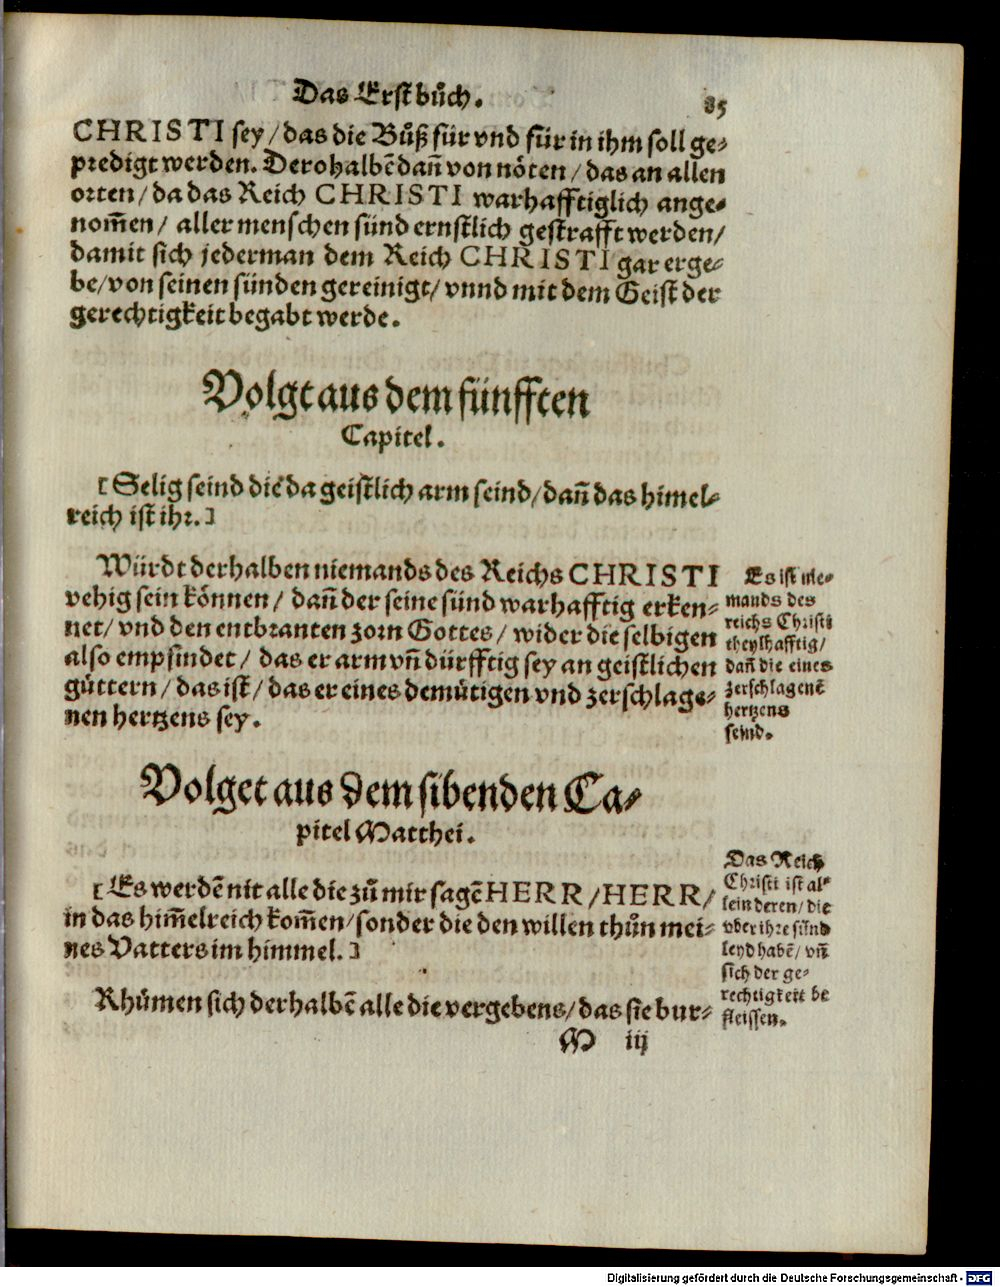 Das Erst buͦch.
85
CHRISTI sey / das die Buͦß für vnd für in ihm soll ge⸗
predigt werden. Derohalbē dañ von nöten / das an allen
orten / da das Reich CHRISTI warhafftiglich ange⸗
nom̃en / aller menschen sünd ernstlich gestrafft werden /
damit sich jederman dem Reich CHRISTI gar erge⸗
be / von seinen sünden gereinigt / vnnd mit dem Geist der
gerechtigkeit begabt werde.
Volgt aus dem fünfften
Capitel.
[Selig seind die da geistlich arm seind / dañ das himel⸗
reich ist ihr.]
Würdt derhalben niemands des Reichs CHRISTI
vehig sein können / dañ der seine sünd warhafftig erken⸗
net / vnd den entbranten zorn Gottes / wider die selbigen
also empfindet / das er arm vñ dürfftig sey an geistlichen
güttern / das ist / das er eines demütigen vnd zerschlage⸗
nen hertzens sey.
Es ist nie⸗
mands des
reichs Christi
theylhafftig /
dañ die eines
zerschlagenē
hertzens
seind.
Volget aus dem sibenden Ca⸗
pitel Matthei.
[Es werdē nit alle die zuͦ mir sagē HERR / HERR /
in das him̃elreich kom̃en / sonder die den willen thuͦn mei⸗
nes Vatters im himmel.]
Rhuͤmen sich derhalbē alle die vergebens / das sie bur⸗
Das Reich
Christi ist al⸗
lein deren / die
vber ihre sünd
leyd habē / vñ
sich der ge⸗
rechtigkeit be
fleissen.
M iij
Digitalisierung gefördert durch die Deutsche Forschungsgemeinschaft - DFG